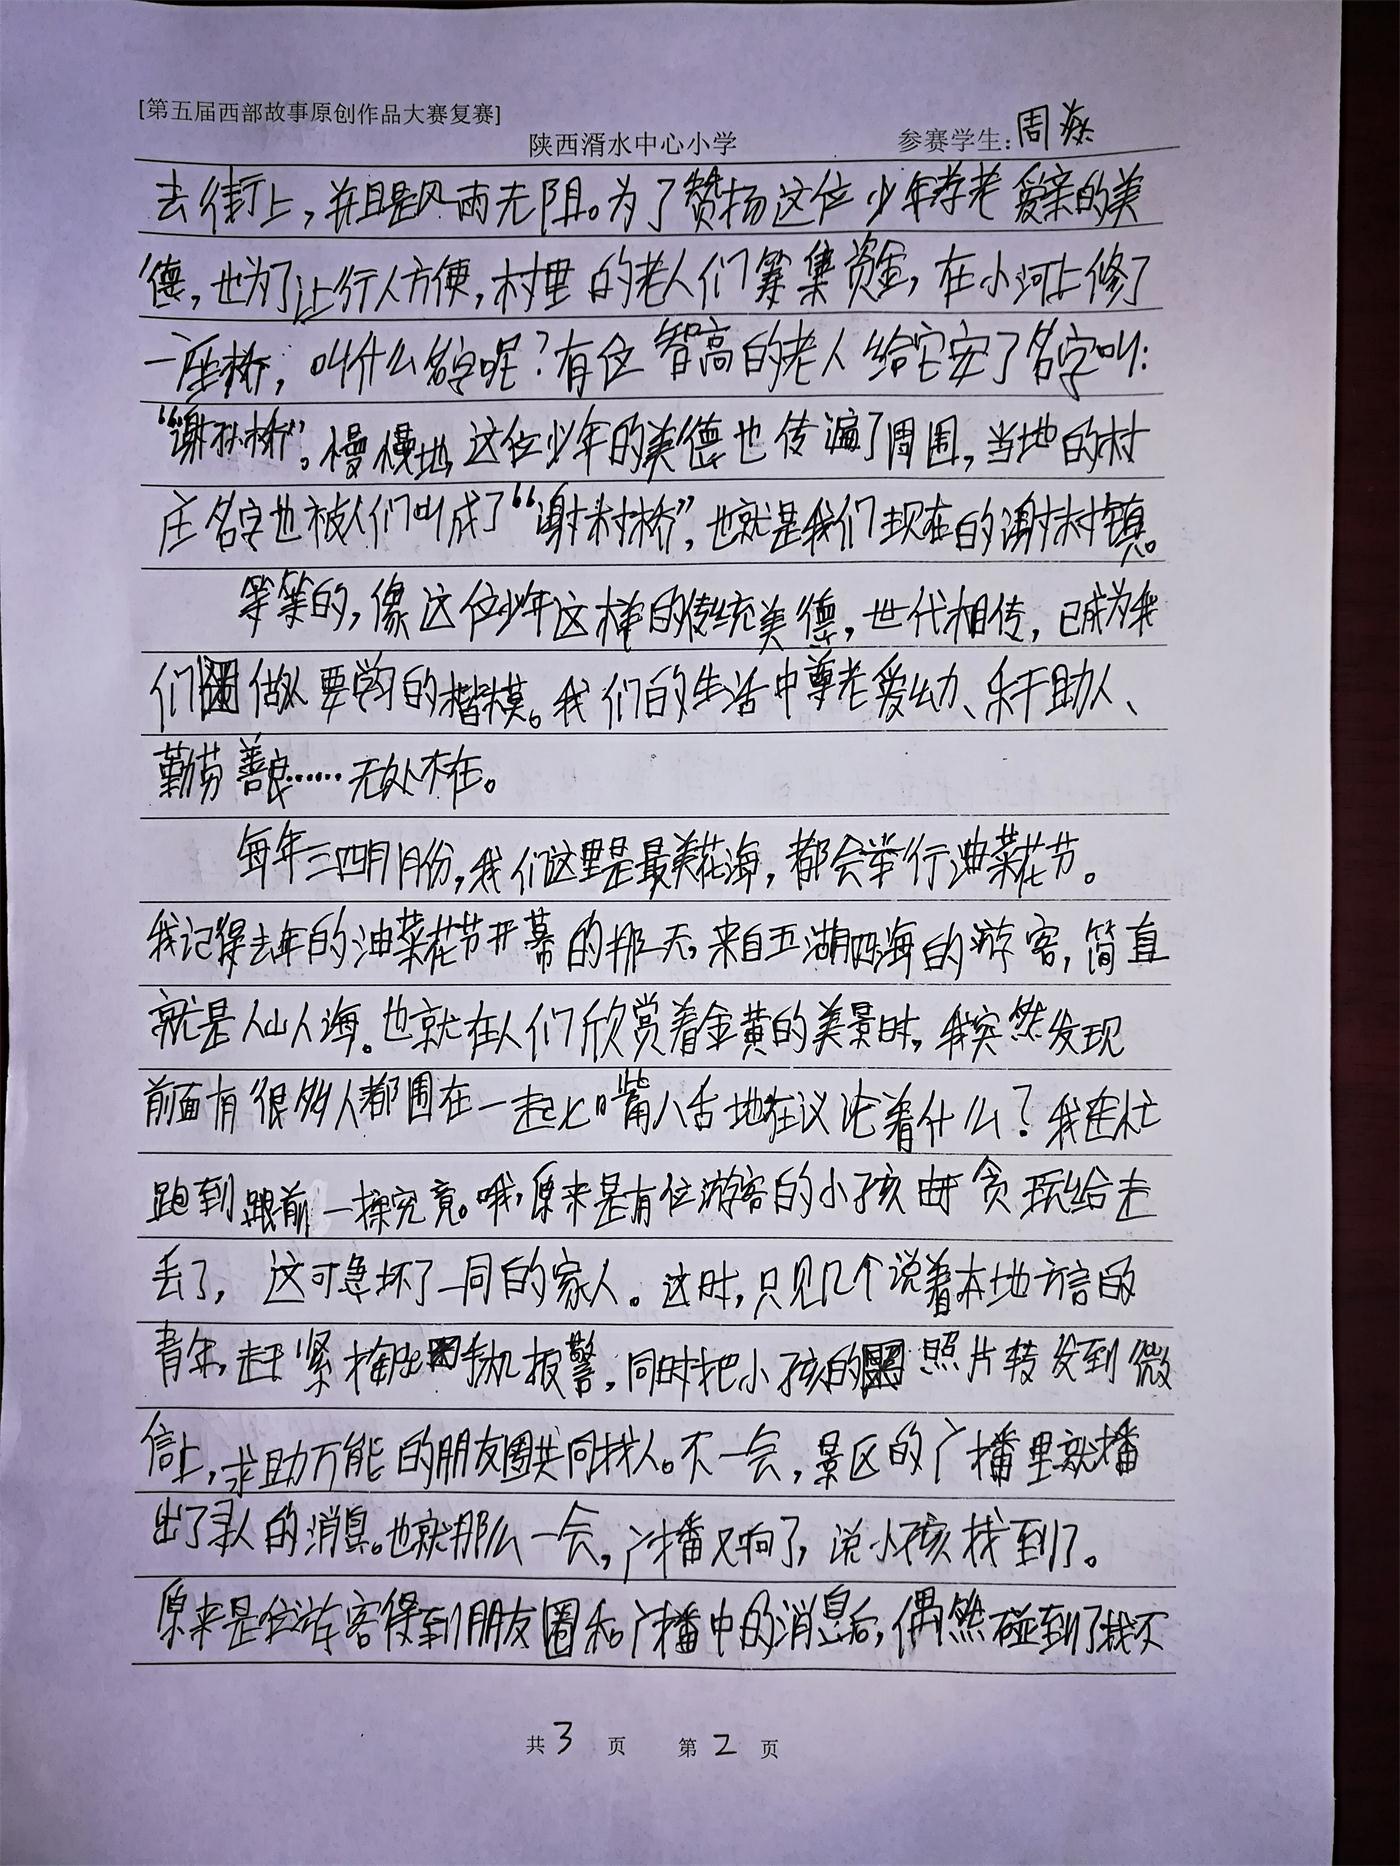 [第五届西部故事原创作品大赛复赛]
陕西湑水中心小学 参赛学生:周焱
去街上，并且是风雨无阻。为了赞扬这位少年孝老爱亲的美
德，也为了让行人方便，村里的老人们筹集资金，在小河上修了
一座桥，叫什么名字呢？有位智高的老人给它安了名字叫：
“谢村桥”。慢慢地这位少年的美德也传遍了周围，当地的村
庄名字也被人们叫成了“谢村桥”，也就是我们现在的谢村镇。
等等的，像这位少年这样的传统美德，世代相传，已成为我
们做人要学习的楷模。我们的生活中尊老爱幼、乐于助人、
勤劳善良……无处不在。
每年三四月月份，我们这里是最美花海，都会举行油菜花节。
我记得去年的油菜花节开幕的那一天，来自五湖四海的游客，简直
就是人山人海。也就在人们欣赏着金黄的美景时，我突然发现
前面有很多人都围在一起七嘴八舌地在议论着什么？我连忙
跑到跟前一探究竟。哦，原来是有位游客的小孩由于贪玩给走
丢了，这可急坏了一同的家人。这时，只见几个说着本地方言的
青年，赶紧掏出手机报警，同时把小孩的照片转发到微
信上，求助万能的朋友圈共同找人。不一会，景区的广播里就播
出了寻人的消息。也就那么一会，广播又响了，说小孩找到了。
原来是位游客得到朋友圈和广播中的消息后，偶然碰到了找不
共3页 第2页